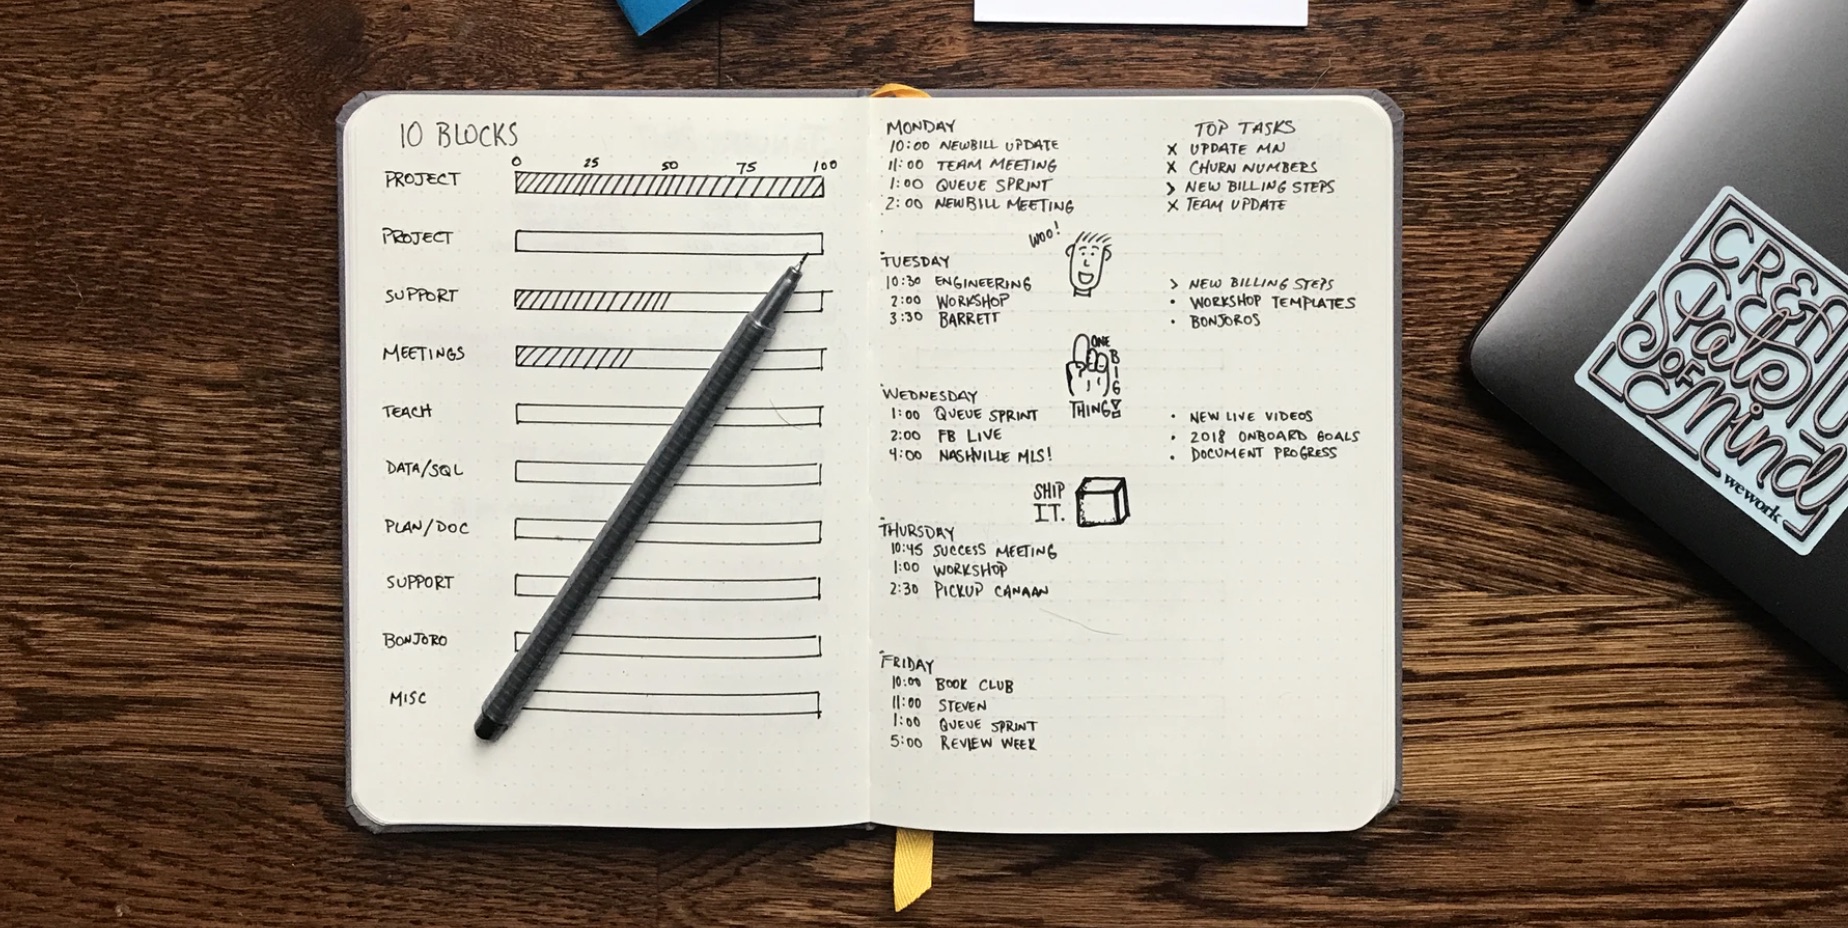 10 BLOCKS
0 25 50 75 100
PROJECT
PROJECT
SUPPORT
MEETINGS
TEACH
DATA/SQL
PLAN/DOC
SUPPORT
BONJORO
MISC
MONDAY
10:00 NEWBILL UPDATE
11:00 TEAM MEETING
1:00 QUEUE SPRINT
2:00 NEWBILL MEETING
TOP TASKS
x UPDATE MN
x CHURN NUMBERS
> NEW BILLING STEPS
x TEAM UPDATE
WOO!
TUESDAY
10:30 ENGINEERING
2:00 WORKSHOP
3:30 BARRETT
> NEW BILLING STEPS
• WORKSHOP TEMPLATES
• BONJOROS
ONE
BIG
THING!
WEDNESDAY
1:00 QUEUE SPRINT
2:00 FB LIVE
4:00 NASHVILLE MLS!
• NEW LIVE VIDEOS
• 2018 ONBOARD GOALS
• DOCUMENT PROGRESS
SHIP
IT.
THURSDAY
10:45 SUCCESS MEETING
1:00 WORKSHOP
2:30 PICKUP CANAAN
FRIDAY
10:00 BOOK CLUB
11:00 STEVEN
1:00 QUEUE SPRINT
5:00 REVIEW WEEK
State
OF
Mind
wework